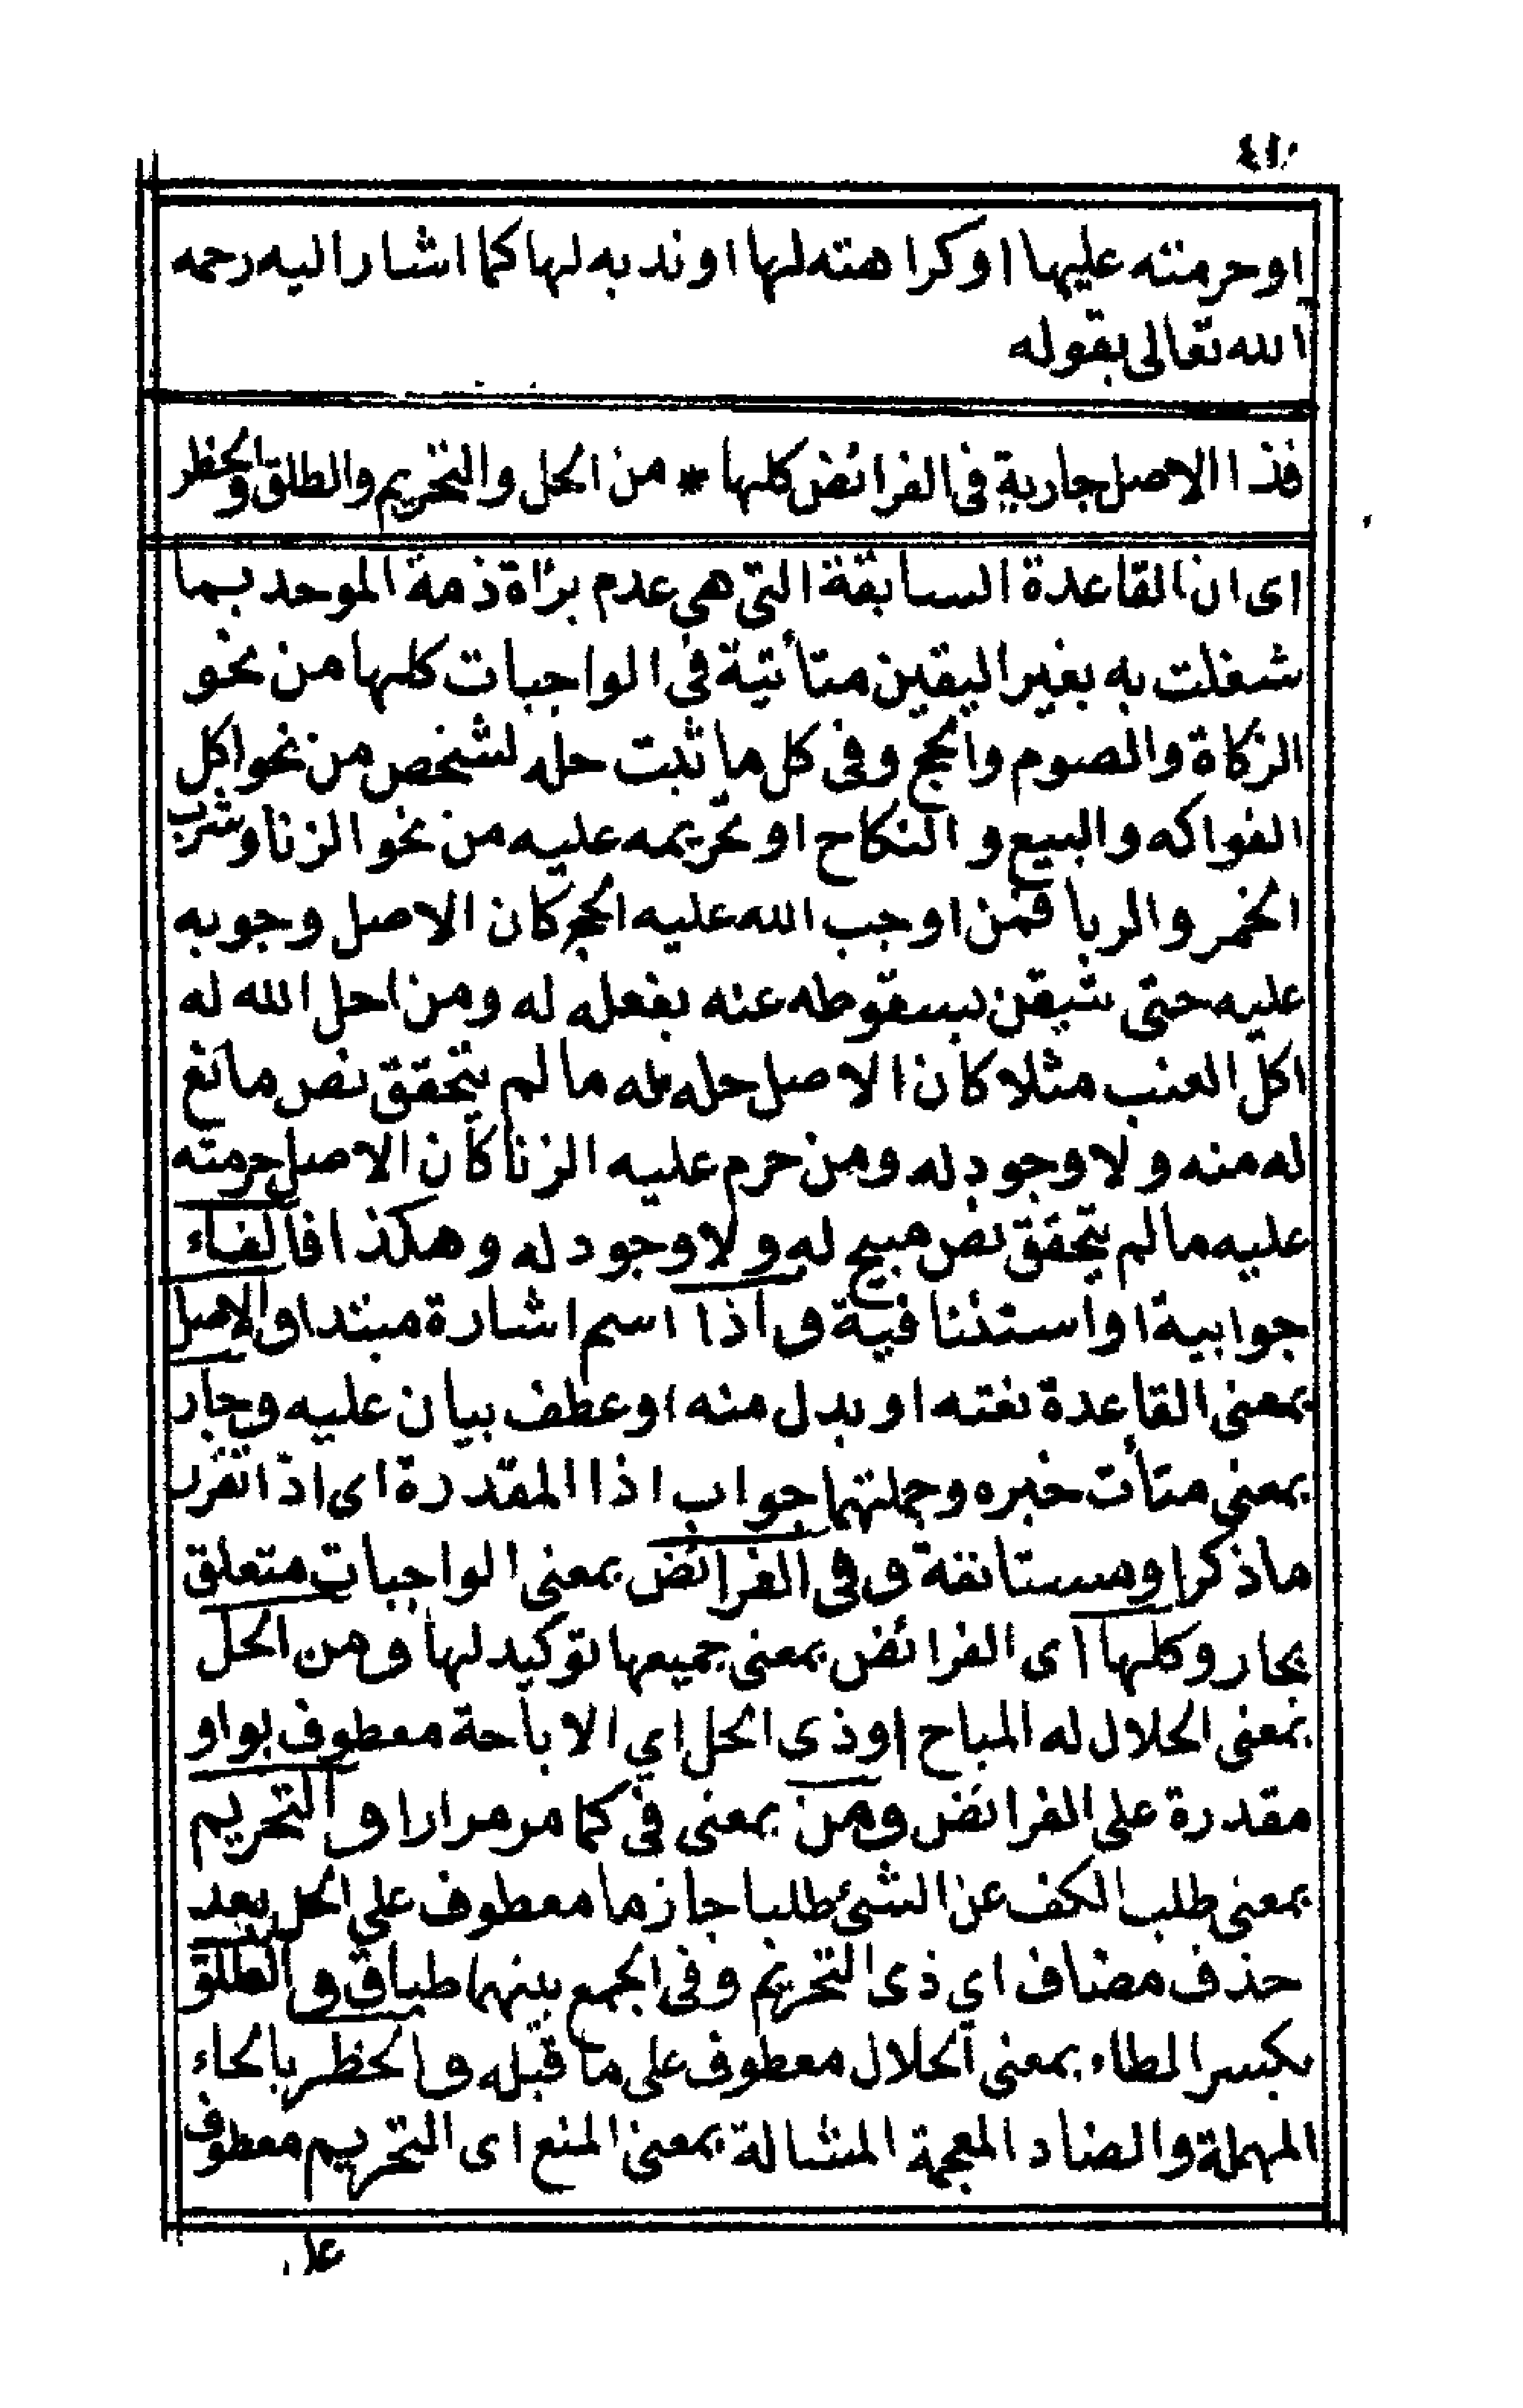 ٤١٠
اوحرمته عليها اوكراهته لها اوندبه لها كما اشار اليه رحمه
الله تعالى بقوله
فذا الاصل جارية فى الفرائض كلها * من الحل والتحريم والطلق والحظر
اى ان القاعدة السابقة التى هي عدم برأة ذمة الموحد بما
شغلت به بغير اليقين متأتية فى الواجبات كلها من نحو
الزكاة والصوم والحج وفى كل ما ثبت حله لشخص من نحو اكل
الفواكه والبيع و النكاح او تحريمه عليه من نحو الزنا وشرب
الخمر والربا فمن اوجب الله عليه الحج كان الاصل وجوبه
عليه حتى يتيقن بسقوطه عنه بفعله له ومن احل الله له
اكل العنب مثلا كان الاصل حله له ما لم يتحقق نص مانع
له منه ولا وجود له ومن حرم عليه الزنا كان الاصل حرمته
عليه ما لم يتحقق نص مبيح له ولا وجود له وهكذا فالفاء
جوابية او استئنافية و اذا اسم اشارة مبتدا والاصل
بمعنى القاعدة نعته او بدل منه او عطف بيان عليه وجار
بمعنى متأت خبره وجملتهما جواب اذا المقدرة اى اذا تقرر
ما ذكر او مستانفة و فى الفرائض بمعنى الواجبات متعلق
بجار وكلها اى الفرائض بمعنى جميعها توكيد لها ومن الحل
بمعنى الحلال له المباح اوذى الحل اي الاباحة معطوف بواو
مقدرة على الفرائض ومن بمعنى فى كما مر مرارا والتحريم
بمعنى طلب الكف عن الشئ طلبا جازما معطوف على الحل بعد
حذف مضاف اي ذى التحريم وفى الجمع بينهما طباق والطلق
بكسر الطاء بمعنى الحلال معطوف على ما قبله والحظر بالحاء
المهملة والضاد المعجمة المشالة بمعنى المنع اى التحريم معطوف
على